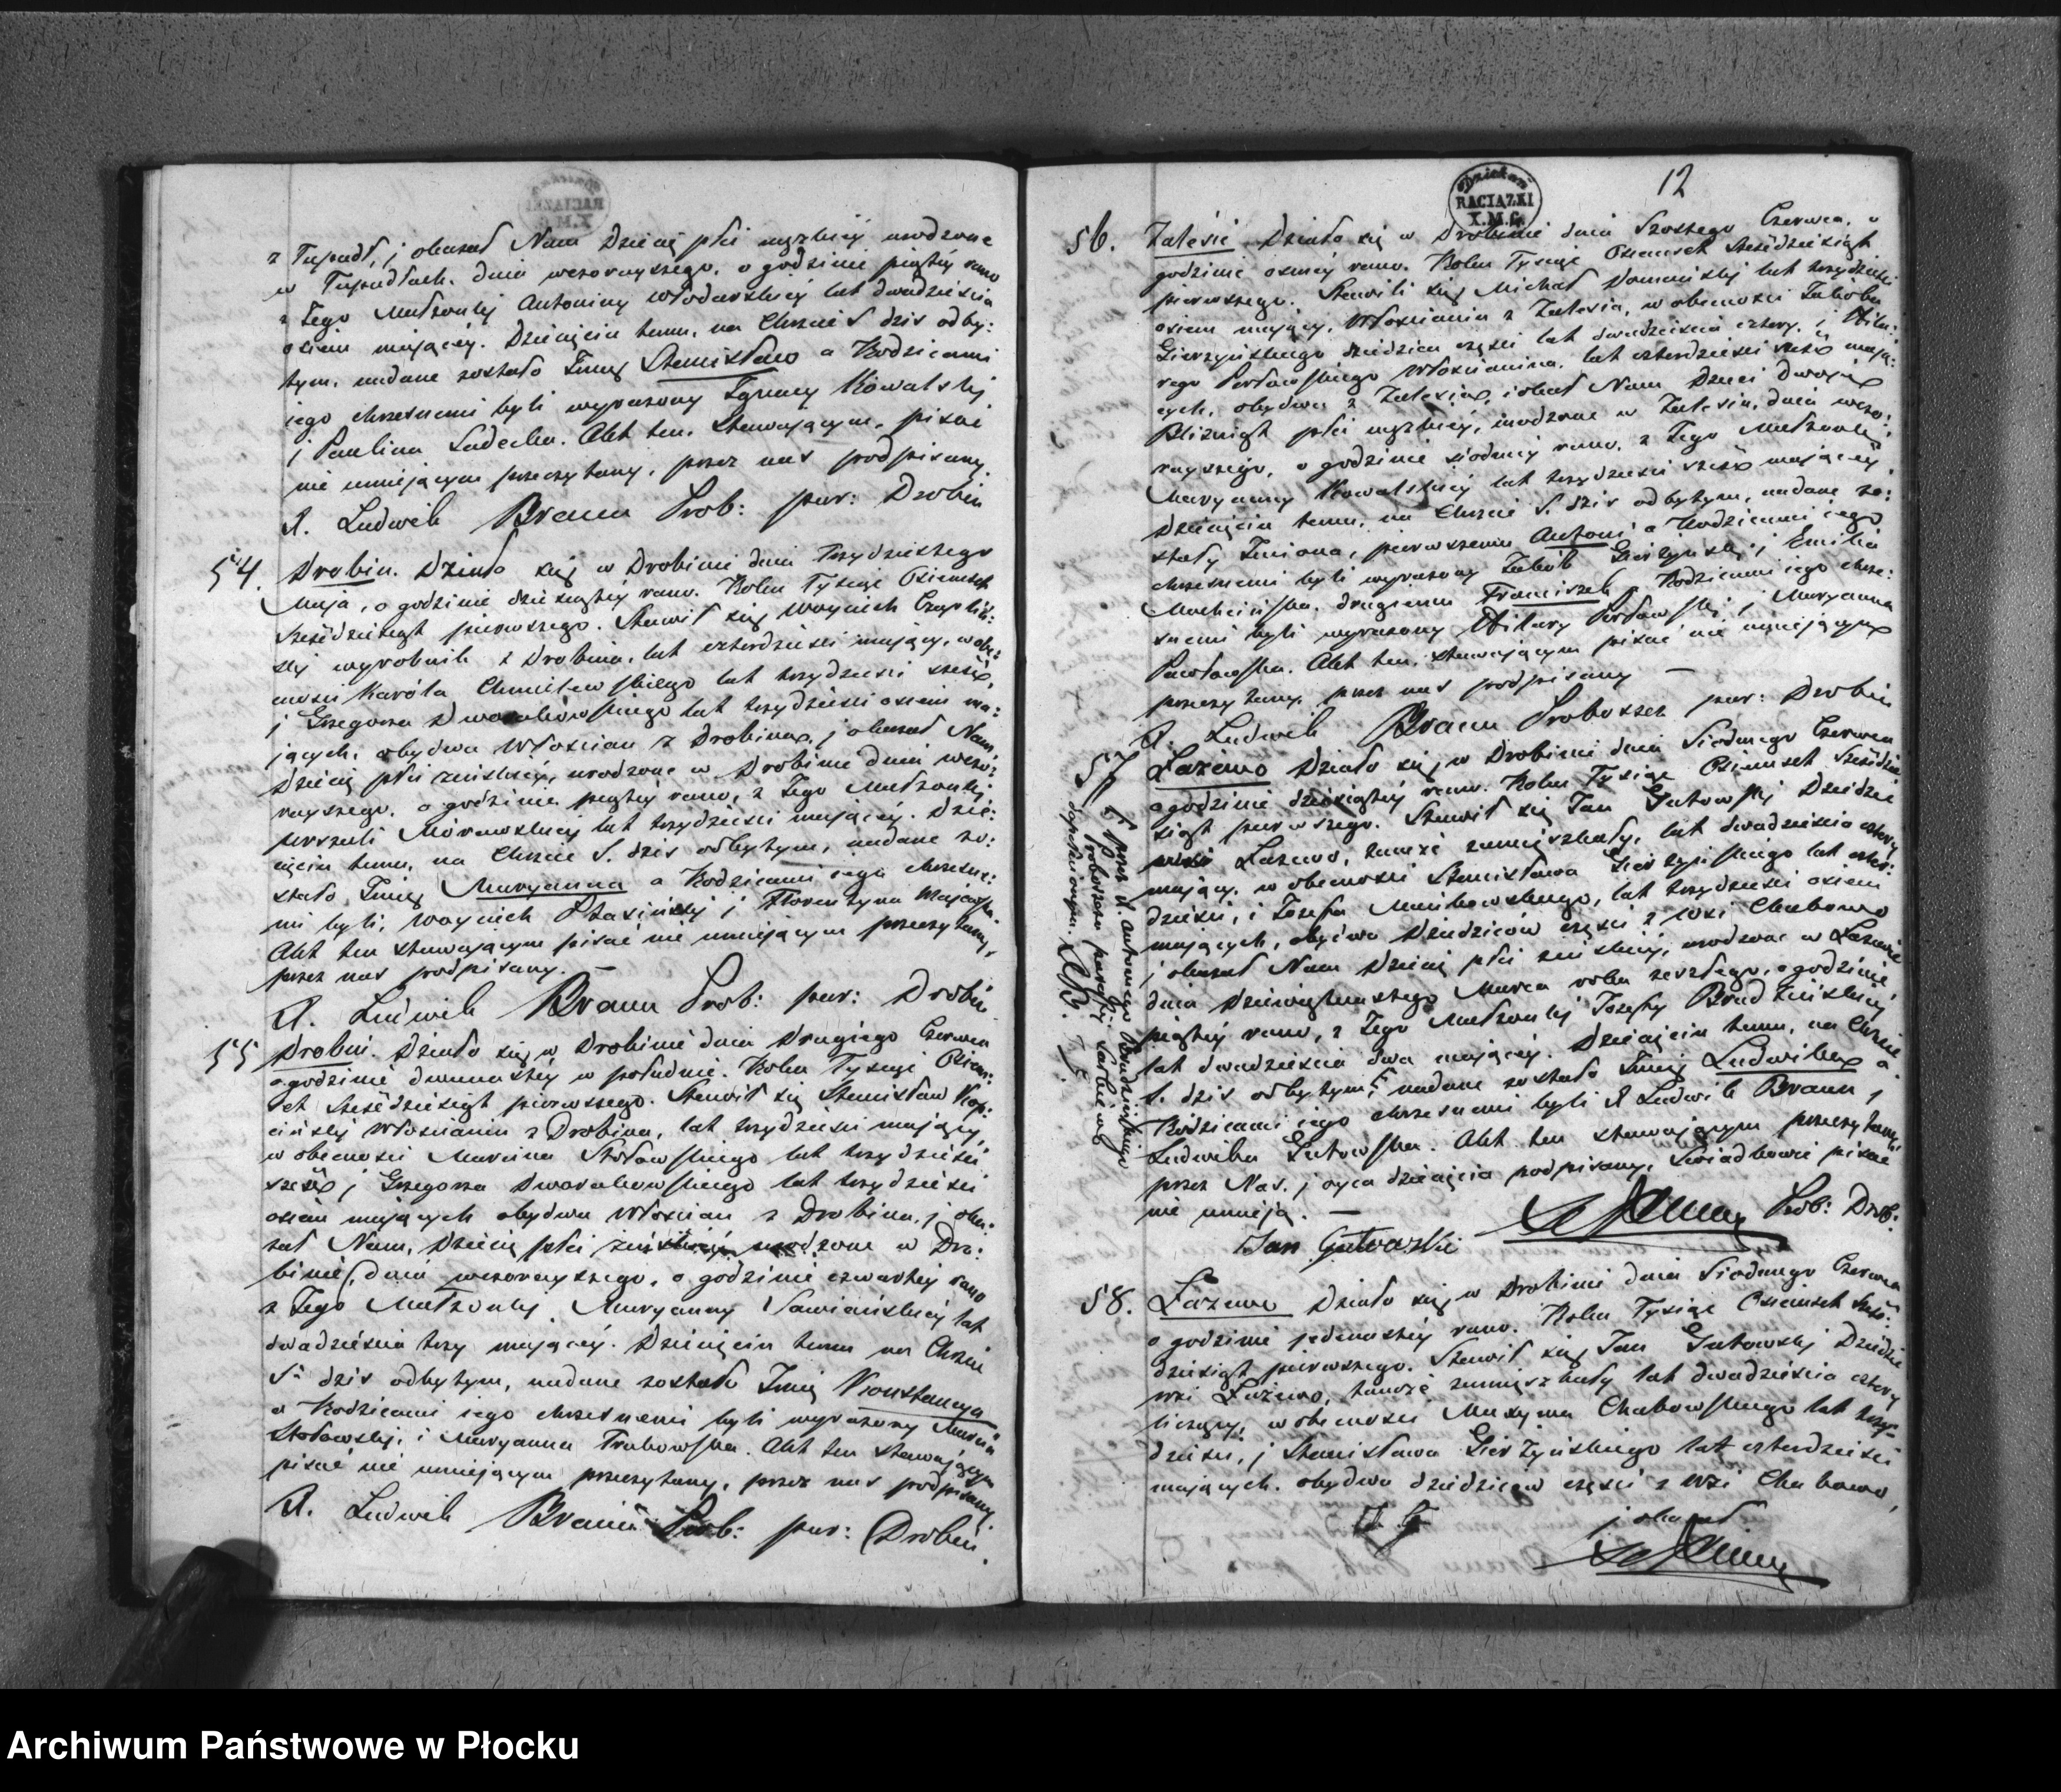 z Tupadł, i okazał Nam Dziecię płci męzkiej urodzone
w Tupadłach, dnia wczorayszego, o godzinie piątej rano
z Jego Małżonki Antoniny Włodarskiej lat dwadzieścia
osiem mającej. Dziecięciu temu, na Chrzcie S. dziś odby:
tym, nadane zostało Imię Stanisław a Rodzicami
iego chrzesnemi byli wyrażony Ignacy Kowalskij
i Paulina Sadecka. Akt ten, Stawającym, pisać
nie umiejącym przeczytany, przez nas podpisany.
X. Ludwik Braun Prob: par: Drobin
54. Drobin. Działo się w Drobinie dnia Trzydziestego
Maja, o godzinie dziesiątej rano. Roku Tysiąc Ośmset
Sześćdziesiąt pierwszego. Stawił się Woyciech Czaplic:
skij wyrobnik z Drobina, lat czterdzieści mający, w obe:
cności Karola Chmielewskiego lat trzydzieści sześć,
i Grzegorza Dworakowskiego lat trzydzieści osiem ma:
jących, obydwa Włościan z Drobina, i okazał Nam
Dziecię płci żeńskiej, urodzone w Drobinie dnia wczo:
rayszego, o godzinie piątej rano, z Jego Małżonki
Urszuli Morawskiej lat trzydzieści mającej. Dzie:
cięciu temu, na Chrzcie S. dziś odbytym, nadane zo:
stało Imię Maryanna a Rodzicami iego chrzesne:
mi byli, Woyciech Ptasińskij i Florentyna Majewska.
Akt ten stawającym pisać nie umiejącym przeczytany,
przez nas podpisany. —
X. Ludwik Braun Prob: par: Drobin
55 Drobin. Działo się w Drobinie dnia Drugiego Czerwca
o godzinie dwunastej w południe. Roku Tysiąc Ośm:
set Sześćdziesiąt pierwszego. Stawił się Stanisław Kop:
cińskij Włościanin z Drobina, lat trzydzieści mający,
w obecności Marcina Stołowskiego lat trzydzieści
sześć i Grzegorza Dworakowskiego lat trzydzieści
osiem mających obydwa Włościan z Drobina, i oka:
zał Nam, Dziecię płci żeńskiej urodzone w Dro:
binie, dnia wczorayszego, o godzinie czwartej rano
z Jego Małżonki Maryanny Sawiańskiej lat
dwadzieścia trzy mającej. Dziecięciu temu na Chrzcie
S. dziś odbytym, nadane zostało Imię Konstancya
a Rodzicami iego chrzesnemi byli wyrażony Marcin
Stołowskij, i Maryanna Trabowska. Akt ten stawającym
pisać nie umiejącym przeczytany, przez nas podpisany.
X. Ludwik Braun Prob: par: Drobin.
Dziekan
RACIĄZKI
X.M.G.
12
56. Zalesie Działo się w Drobinie dnia Szóstego Czerwca, o
godzinie osmej rano. Roku Tysiąc Ośmset Sześćdziesiąt
pierwszego. Stawili się Michał Domańskij lat trzydzieści
osiem mający, Włościanin z Zalesia, w obecności Jakóba
Gierzyńskiego dziedzica części lat dwadzieścia cztery, i Hila:
rego Pawłowskiego Włościanina, lat czterdzieści sześć mają:
cych, obydwa z Zalesia, i okazał Nam Dzieci Dwoje
Bliźniąt płci męzkiej, urodzone w Zalesiu, dnia wczo:
rayszego, o godzinie siodmej rano, z Jego Małżonki
Maryanny Kowalskiej lat trzydzieści sześć mającej.
Dziecięciu temu, na Chrzcie S. dziś odbytym, nadane zo:
stały Imiona, pierwszemu Antoni a Rodzicami iego
chrzesnemi byli wyrażony Jakób Gierzyńskij i Emilia
Machcińska, drugiemu Franciszek a Rodzicami iego chrze:
snemi byli wyrażony Hilary Pawłowskij i Maryanna
Pawłowska. Akt ten, stawającym pisać nie umiejącym
przeczytany, przez nas podpisany —
X. Ludwik Braun Proboszcz par: Drobin
57 Łazewo Działo się w Drobinie dnia Siodmego Czerwca
o godzinie dziesiątej rano. Roku Tysiąc Ośmset Sześćdzie
siąt pierwszego. Stawił się Jan Gutowskij Dziedzic
wsi Łazewo, tamże zamieszkały, lat dwadzieścia cztery
mający, w obecności Stanisława Gierzyńskiego lat czter:
dzieści, i Józefa Mankowskiego, lat trzydzieści osiem
mających, obydwa Dziedziców części z wsi Chabowo
i okazał Nam Dziecię płci żeńskiej, urodzone w Łazewie
dnia Dziewiętnastego Marca roku zeszłego, o godzinie
piątej rano, z Jego Małżonki Józefy Brudzińskiej
lat dwadzieścia dwa mającej. Dziecięciu temu, na Chrzcie
S. dziś odbytym, nadane zostało Imię Ludwika a
Rodzicami iego chrzesnemi byli X Ludwik Braun i
Ludwika Gutowska. Akt ten stawającym przeczytany,
przez Nas, i oyca dziecięcia podpisany, Świadkowie pisać
nie umieją. — Prob: Drob:
Jan Gutowski
przez X. Antoniego Brudzińskiego
Proboszcza parafii
dopełnionym.
58. Łazewo Działo się w Drobinie dnia Siodmego Czerwca
o godzinie jedenastej rano. Roku Tysiąc Ośmset Sześć:
dziesiąt pierwszego. Stawił się Jan Gutowskij Dziedzic
wsi Łazewo, tamże zamieszkały lat dwadzieścia cztery
liczący, w obecności Maxyma Chabowskiego lat trzy:
dzieści, i Stanisława Gierzyńskiego lat czterdzieści
mających, obydwa dziedziców części z wsi Chabowo,
i okazał
J. G.
Archiwum Państwowe w Płocku